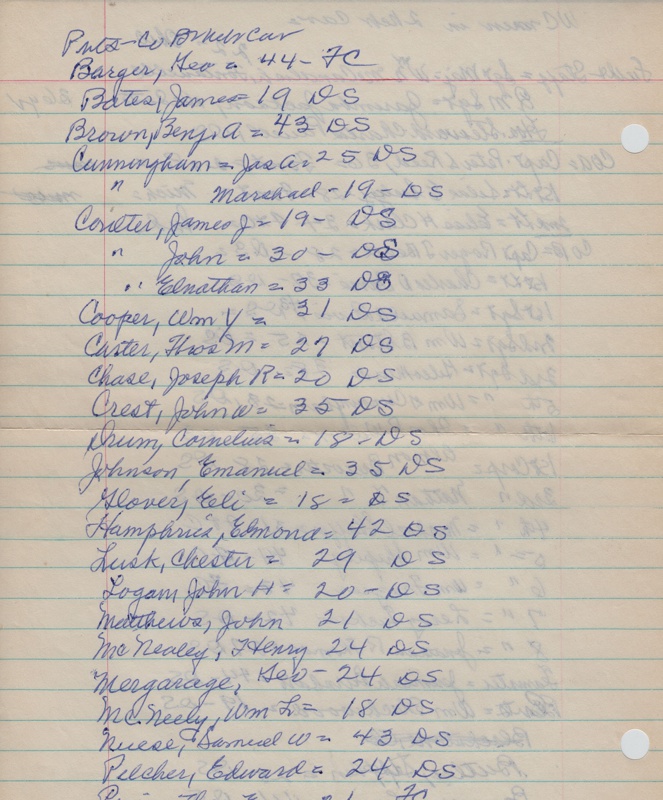 Pvts - Co B
Barger, Geo = 44 - FC
Bates, James 19 DS
Brown, Benj. A = 43 DS
Cunningham = Jas A = 25 DS
" Marshael - 19 - DS
Coulter, James J = 19 - DS
" John = 30 - DS
" Elnathan = 33 DS
Cooper, Wm Y = 31 DS
Custer, Thos M = 27 DS
Chase, Joseph R = 20 DS
Crest, John W = 35 DS
Drum, Cornelius = 18 - DS
Johnson, Emanuel = 35 DS
Glover, Eli = 18 = DS
Humphries, Edmond = 42 DS
Lusk, Chester = 29 DS
Logan, John H = 20 - DS
Matthews, John 21 DS
McNealey, Henry 24 DS
Mergarage, Geo - 24 DS
McNeely, Wm L = 18 DS
Neese, Samuel W = 43 DS
Pilcher, Edward = 24 DS